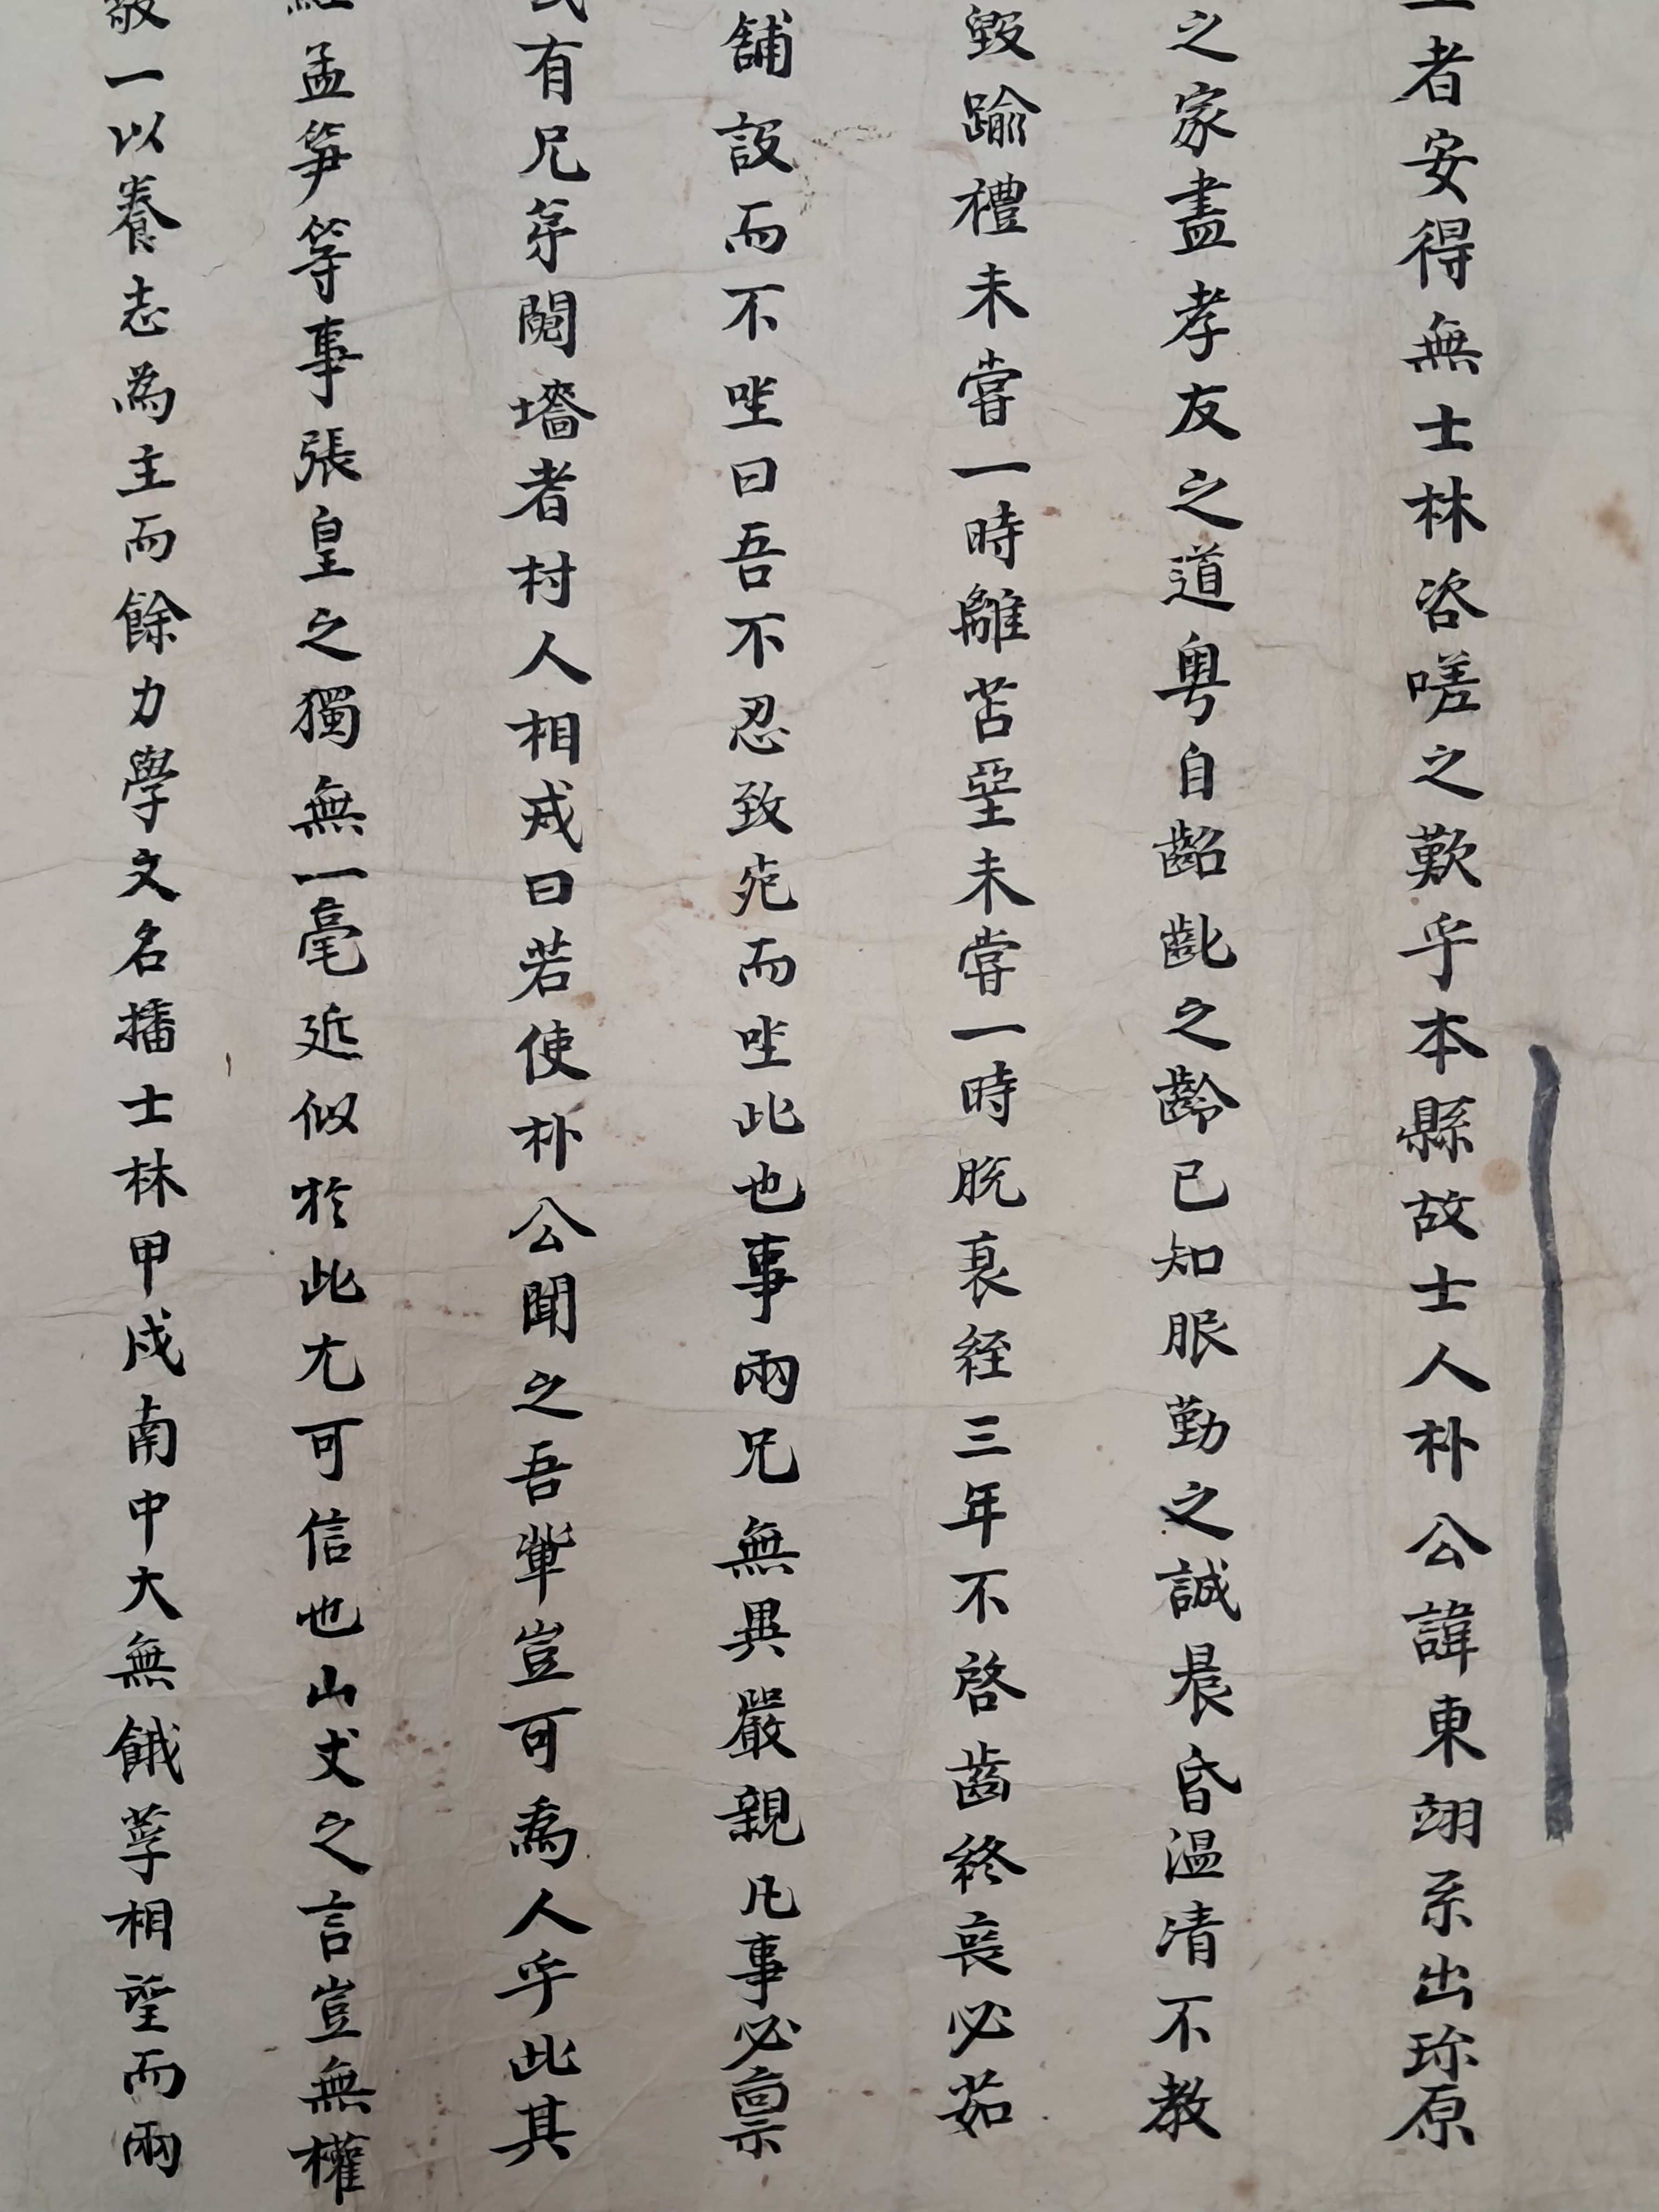 者安得無士林咨嗟之歎乎本縣故士人朴公諱東翊系出珎原
之家盡孝友之道粤自齠齔之齡已知服勤之誠晨昏温凊不教
毁踰禮未甞一時離苫堊未甞一時脫衰絰三年不啓齒終喪必茹
舖設而不坐曰吾不忍致死而坐此也事兩兄無異嚴親凡事必禀
有兄弟鬩墻者村人相戒曰若使朴公聞之吾輩豈可為人乎此其
孟笋等事張皇之獨無一毫近似於此尤可信也山丈之言豈無權
一以養志為主而餘力學文名播士林甲戌南中大無餓莩相望而兩